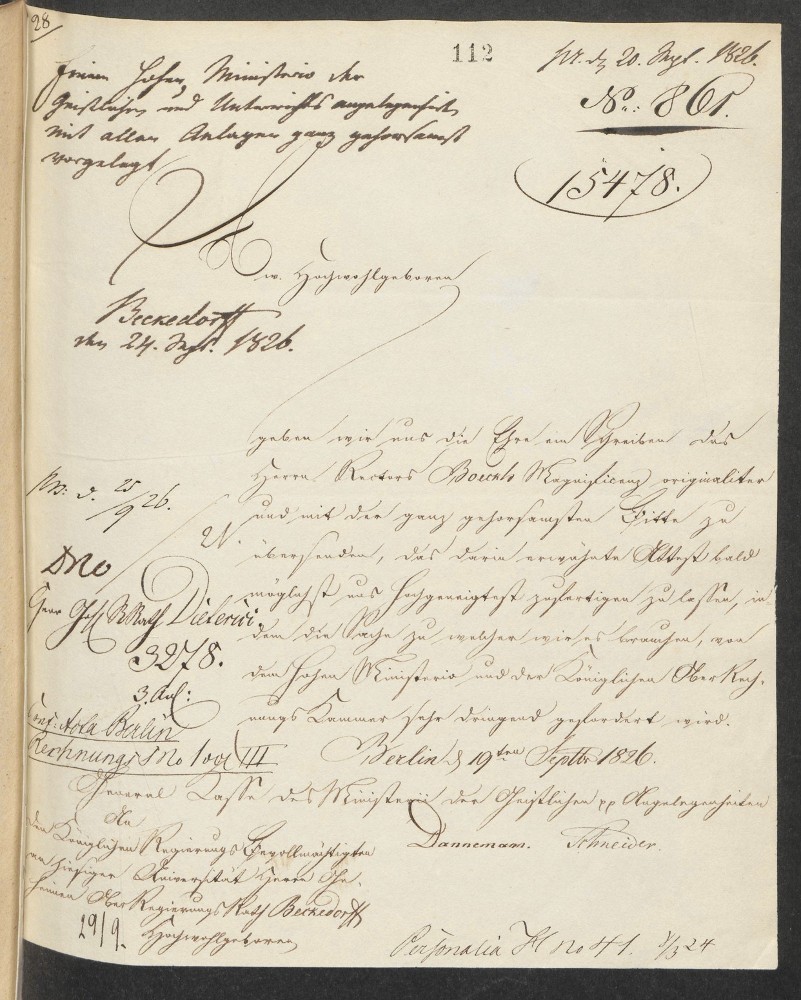 28
112
pr. d. 20. Sept. 1826.
No: 861.
15478.
Einem Hohen Ministerio der
Geistlichen und Unterrichts angelegenheiten
mit allen Anlagen ganz gehorsamst
vorgelegt
Beckedorff
den 24. Sept. 1826.
Ew. Hochwohlgeboren
geben wir uns die Ehre ein Schreiben des
Herrn Rectors Boeckh Magnificenz originaliter
und mit der ganz gehorsamsten Bitte zu
übersenden, das darin erwähnte Attest bald
möglichst uns hochgeneigtest zufertigen zu lassen, in
dem die Sache zu welcher wir es brauchen, von
dem Hohen Ministerio und der Königlichen Ober Rech-
nungs Kammer sehr dringend gefordert wird.
Berlin d 19ten Septbr 1826.
General Casse des Ministerii der Geistlichen pp Angelegenheiten
Dannemann. Schneider.
pr: d. 25/9 26.
U.
Dno
Herr Geh. R. Rath Dieterici
3278.
3. Anl:
Acta Berlin
Rechnungs No IIII
An
den Königlichen Regierungs Bevollmächtigten
an hiesiger Universität Herrn Ge-
heimen Ober Regierungs Rath Beckedorff
Hochwohlgeboren
29/9.
Personalia H no 41. 24